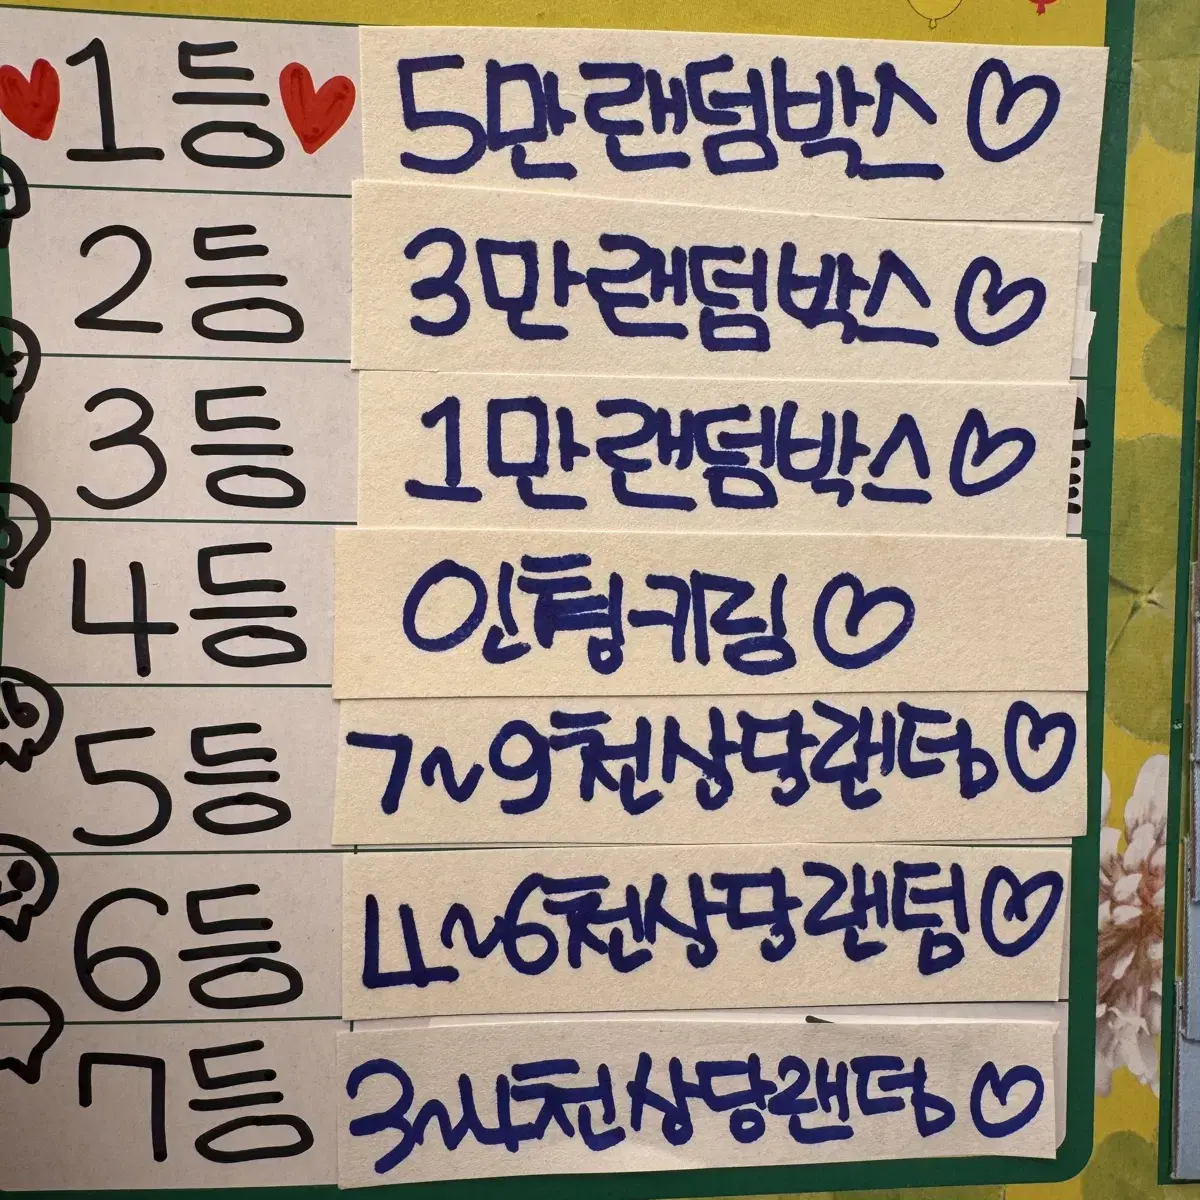 1등 5만랜덤박스
2등 3만랜덤박스
3등 1만랜덤박스
4등 인형키링
5등 7~9천상당랜덤
6등 4~6천상당랜덤
7등 3~4천상당랜덤